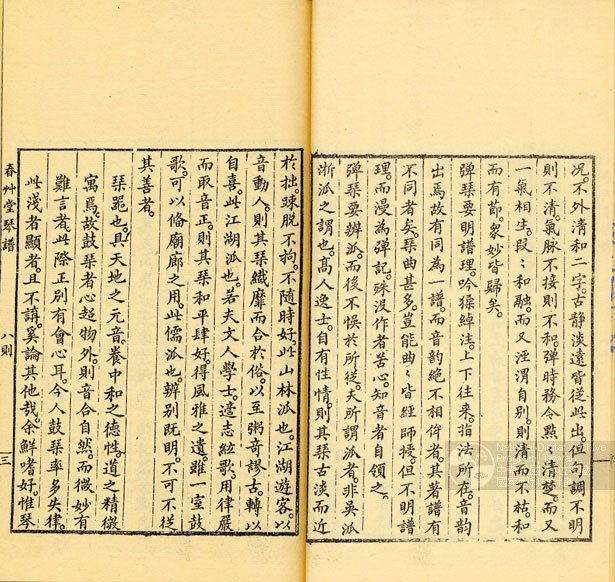 况。不外清和二字。古静淡遠皆從此出。但句調不明
則不清。氣脉不接則不和。彈時務令點點清楚。而又
一氣相生。叚〻和融。而又涇渭自別。則清而不枯。和
而有節。衆妙皆歸矣。
彈琴要明譜理。吟猱綽注。上下往來。指法所在。音韻
出焉。故有同為一譜。而音韵絶不相侔者。其著譜有
不同者矣。琴曲甚多。豈能曲〻皆經師授。但不明譜
理。而漫為彈記。殊没作者苦心。知音者自領之。
彈琴要辨派。而後不悞於所從。夫所謂派者。非吳派
浙派之謂也。高人逸士。自有性情。則其琴古淡而近
於拙。疎脱不拘。不隨時好。此山林派也。江湖遊客。以
音動人。則其琴纎靡而合於俗。以至粥奇謬古。轉以
自喜。此江湖派也。若夫文人學士。適志絃歌。用律嚴
而取音正。則其琴和平肆好。得風雅之遺。雖一室鼓
歌。可以偹廟廊之用。此儒派也。辨别既明。不可不從
其善者。
琹噐也。具天地之元音。養中和之德性。道之精微
寓焉。故鼓琹者心超物外。則音合自然。而微妙有
難言者。此際正别有會心耳。今人鼓琹率多失律。
此淺者顯者。且不講。奚論其他哉。余鮮嗜好。惟琴
春艸堂琴譜
八則
三